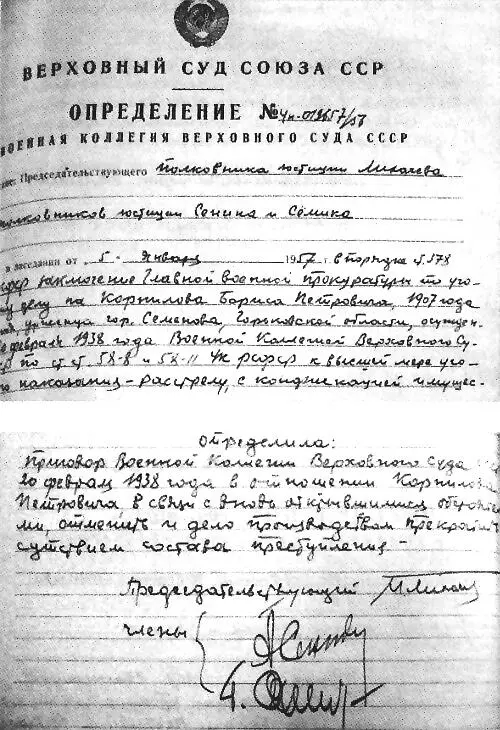 ВЕРХОВНЫЙ СУД СОЮЗА ССР
ОПРЕДЕЛЕНИЕ №4н-019657/56
ВОЕННАЯ КОЛЛЕГИЯ ВЕРХОВНОГО СУДА СССР
Председательствующего полковника юстиции Лихачева
полковников юстиции Сенина и Семика
в заседании от „5“ января 1957 г. в порядке ст. 378
заключение Главной военной прокуратуры по уго-
делу на Корнилова Бориса Петровича, 1907 года
уроженца гор. Семенова, Горьковской области, осужден-
февраля 1938 года Военной Коллегией Верховного Су-
по ст.ст. 58-8 и 58-11 УК РСФСР к высшей мере уго-
наказания - расстрелу, с конфискацией имущес-
определила:
Приговор Военной Коллегии Верховного Суда
20 февраля 1938 года в отношении Корнилова
Петровича, в связи с вновь открывшимися обстоятель
ми, отменить и дело производством прекратить
сутствием состава преступления -
Председательствующий
члены